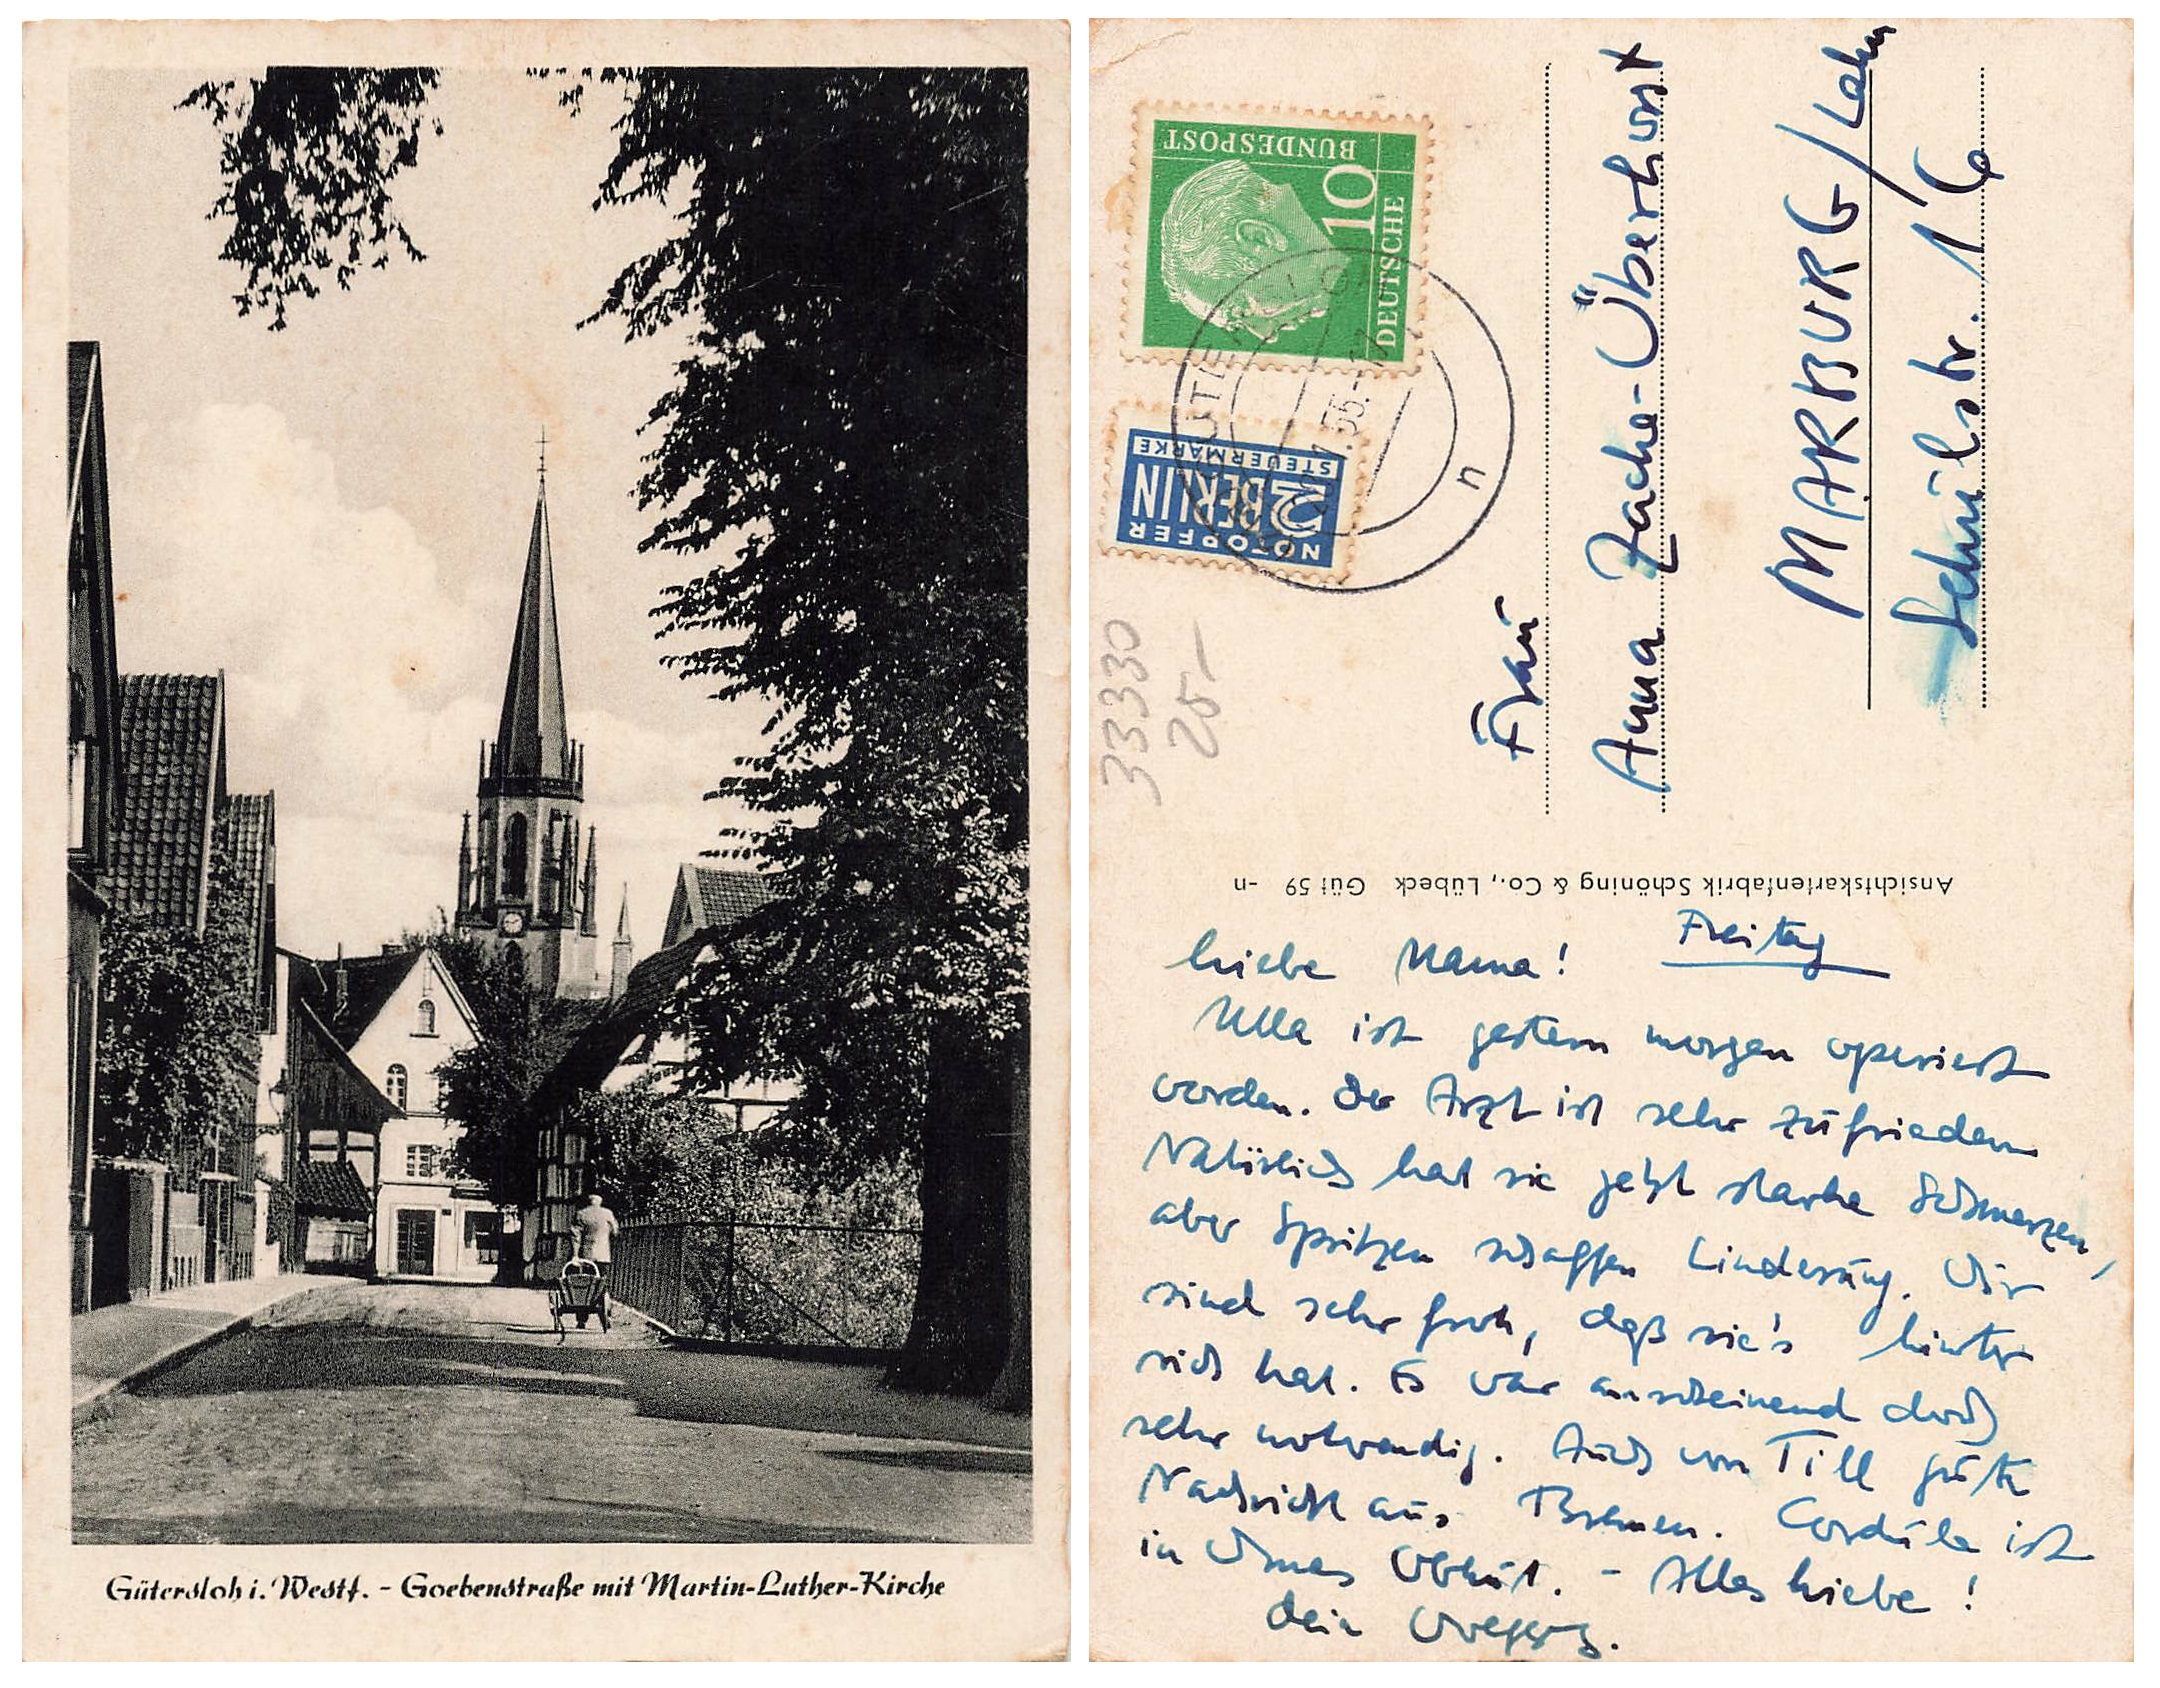 Gütersloh i. Westf. - Goebenstraße mit Martin-Luther-Kirche
DEUTSCHE
BUNDESPOST
10
NOTOPFER
2 BERLIN
STEUERMARKE
GÜTERSLOH
n
33330
25-
Frau
Anna Zache-Überhorst
MARBURG/Lahn
Schulstr. 16
Ansichtskartenfabrik Schöning & Co., Lübeck Güt 59 -n
Freitag
Liebe Mama!
Ulla ist gestern morgen operiert
worden. Der Arzt ist sehr zufrieden
Natürlich hat sie jetzt starke Schmerzen,
aber Spritzen schaffen Linderung. Wir
sind sehr froh, daß sie's hinter
sich hat. Es war anscheinend doch
sehr notwendig. Auch von Till gute
Nachricht aus Bremen. Cordula ist
in Omas Obhut. - Alles Liebe!
Dein